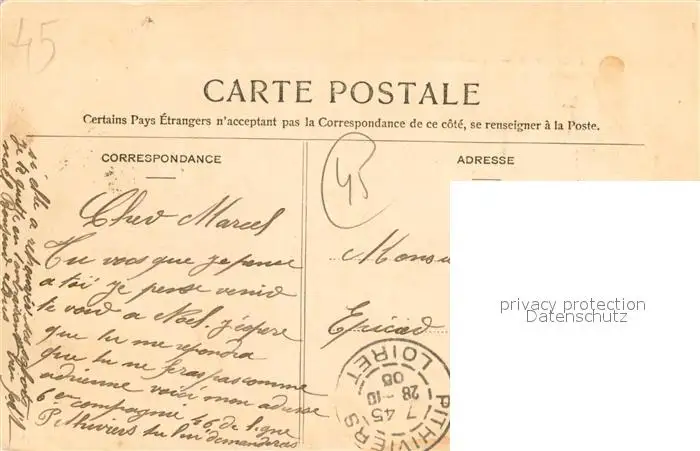 45
CARTE POSTALE
Certains Pays Étrangers n'acceptant pas la Correspondance de ce côté, se renseigner à la Poste.
CORRESPONDANCE
Cher Marcel
Tu vois que je pense
a toi je pense venir
te voir a Noel. j'espere
que tu me repondra
que tu ne feras pas comme
adrienne voici mon adresse
6e compagnie 46 de ligne
Pithiviers tu lui demanderas
si elle a
je te quitte en
ADRESSE
45
Monsi
Epicod
PITHIVIERS
LOIRET
7 45
28 -10
05
privacy protection
Datenschutz